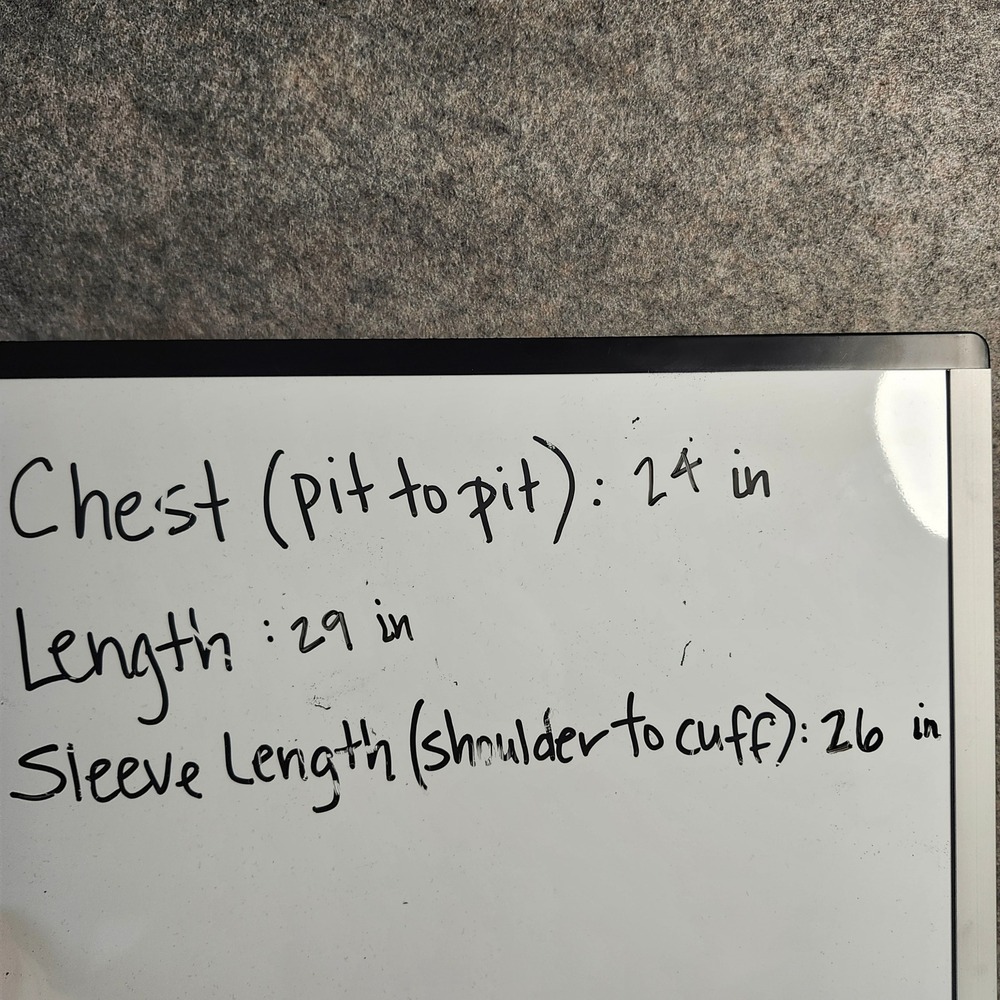 Chest (pit to pit): 24 in
Length : 29 in
Sleeve Length (shoulder to cuff): 26 in